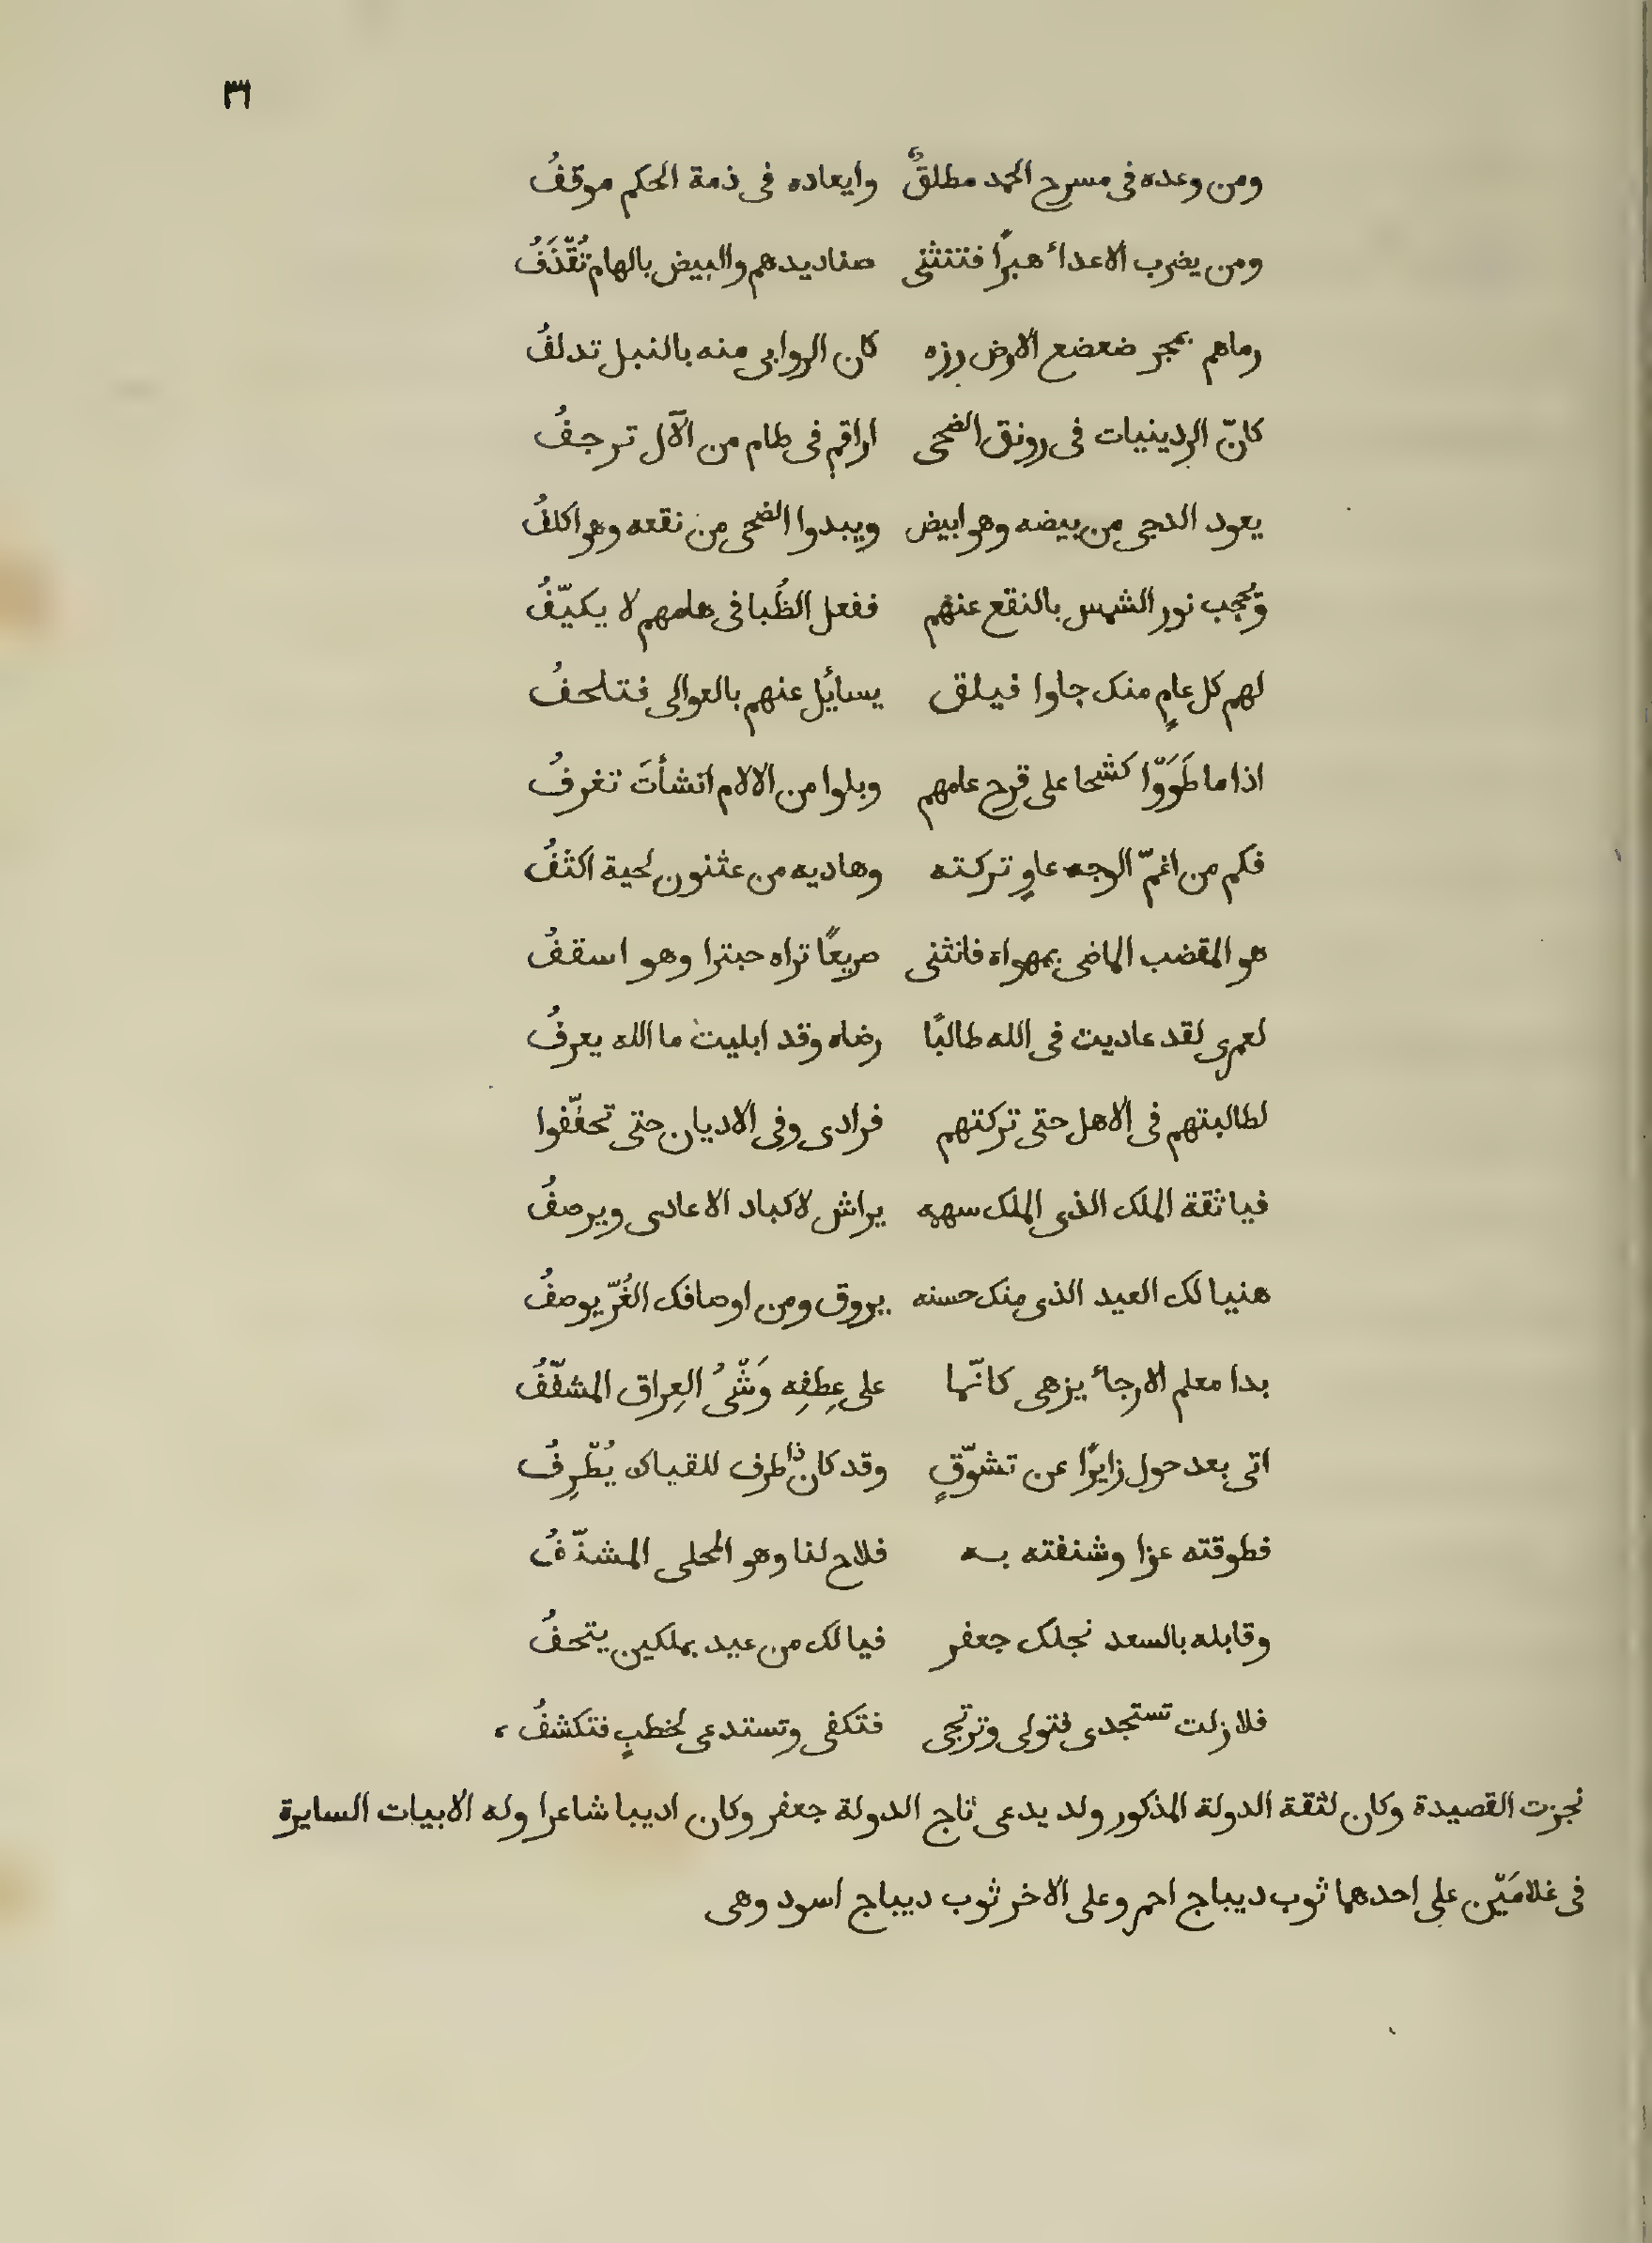 ٣٦
ومن وعده فى مسرح الحمد مطلقٌ وايعاده فى ذمة الحكم موقفُ
ومن يضرب الاعداء هبرًا فتنثنى صناديدهم والبيض بالهام تُقّذَفُ
رماهم بمجر ضعضع الارض رزه كان الروابى منه بالنبل تدلفُ
كانّ الردينيات فى رونق الضحى اراقم فى طام من الآل ترجفُ
يعود الدجى من بيضه وهو ابيض ويبدوا الضحى من نقعه وهو اكلفُ
وتُحجب نور الشمس بالنقع عنهم ففعل الظُبا فى هامهم لا يكيّفُ
لهم كل عامٍ منك جاوا فيلق يسائل عنهم بالعوالى فتلحفُ
اذا ما طَوَوّا كشحا على قرح عامهم وبلوا من الالام انشأتَ تغرفُ
فكم من اغمّ الوجه عاوٍ تركته وهاديه من عثنون لحية اكثفُ
هو المقضب الماضى بمهواه فانثنى صريعًا تراه حبترا وهو اسقفُ
لعمرى لقد عاديت فى الله طالبًا رضاه وقد ابليت ما الله يعرفُ
لطالبتهم فى الاهل حتى تركتهم فرادى وفى الاديان حتى تحنّفوا
فيا ثقة الملك الذى الملك سهمه يراش لاكباد الاعادى ويرصفُ
هنيا لك العيد الذى منك حسنه يروق ومن اوصافك الغُرّ يوصفُ
بدا معلم الارجاء يزهى كانّما على عِطفِه وَشّىُ العِراق المشفّفُ
اتى بعد حول زايرًا عن تشوّقٍ وقد كان ذا طرف للقياك يُطّرِفُ
فطوقته عزا وشنفته به فلاح لنا وهو المحلى المشنّفُ
وقابله بالسعد نجلك جعفر فيا لك من عيد بملكين يتحفُ
فلا زلت تستجدى فتولى وترتجى فتكفى وتستدعى لخطبٍ فتكشفُ ،
نجزت القصيدة وكان لثقة الدولة المذكور ولد يدعى تاج الدولة جعفر وكان اديبا شاعرا وله الابيات السايرة
فى غلامَيّن على احدهما ثوب ديباج احمر وعلى الاخر ثوب ديباج اسود وهى